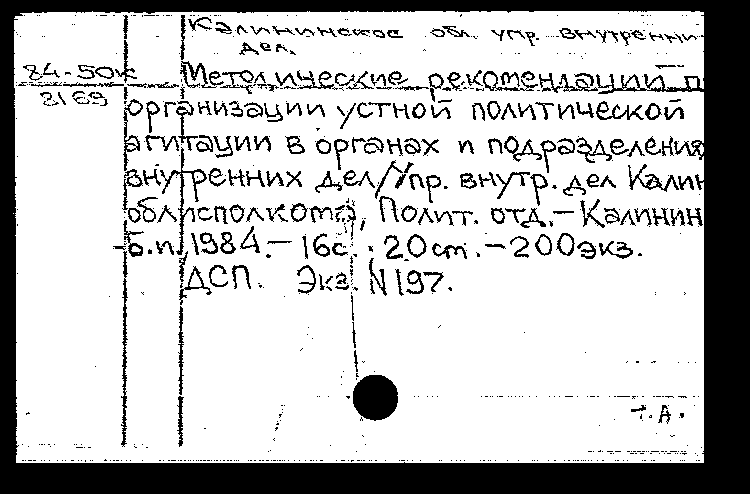 Калининское обл. упр. внутренни
дел.
84-50к Методические рекомендации п
2169 организации устной политической
агитации в органах и подразделения
внутренних дел/Упр. внутр. дел Калин
облисполкома, Полит. отд.-Калинин
Б.п.,1984.-16с.; 20см.-200экз.
ДСП. Экз. N197.
т.А.